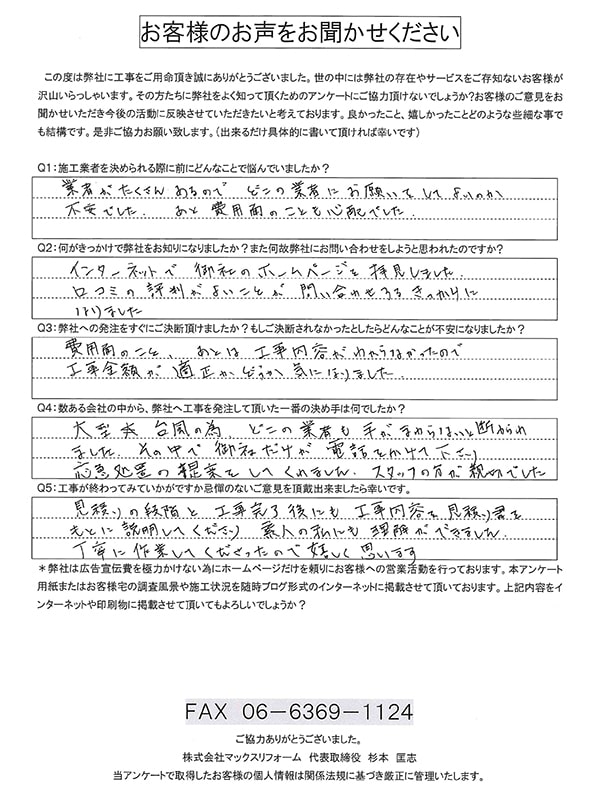 お客様のお声をお聞かせください
この度は弊社に工事をご用命頂き誠にありがとうございました。世の中には弊社の存在やサービスをご存知ないお客様が
沢山いらっしゃいます。その方たちに弊社をよく知って頂くためのアンケートにご協力頂けないでしょうか?お客様のご意見をお
聞かせいただき今後の活動に反映させていただきたいと考えております。良かったこと、嬉しかったことどのような些細な事で
も結構です。是非ご協力お願い致します。(出来るだけ具体的に書いて頂ければ幸いです)
Q1:施工業者を決められる際に前にどんなことで悩んでいましたか?
業者がたくさんあるので どこの業者にお願いをしてよいのか
不安でした. あと費用面のことも心配でした.
Q2:何がきっかけで弊社をお知りになりましたか?また何故弊社にお問い合わせをしようと思われたのですか?
インターネットで 御社のホームページを拝見しました.
口コミの評判がよいことが 問い合わせするきっかけに
なりました
Q3:弊社への発注をすぐにご決断頂けましたか?もしご決断されなかったとしたらどんなことが不安になりましたか?
費用面のこと、あとは工事内容がわからなかったので
工事金額が適正かどうか気になりました.
Q4:数ある会社の中から、弊社へ工事を発注して頂いた一番の決め手は何でしたか?
大型 台風の為、どこの業者も手がまわらないと断られ
ました. その中で御社だけが 電話をかけて下さり
応急処置の提案をしてくれました. スタッフの方が親切でした
Q5:工事が終わってみていかがですか忌憚のないご意見を頂戴出来ましたら幸いです。
見積りの段階と工事完了後にも 工事内容を見積り書を
もとに説明してくださり 素人の私にも理解ができました.
丁寧に作業してくださったので嬉しく思います
*弊社は広告宣伝費を極力かけない為にホームページだけを頼りにお客様への営業活動を行っております。本アンケート
用紙またはお客様宅の調査風景や施工状況を随時ブログ形式のインターネットに掲載させて頂いております。上記内容をイ
ンターネットや印刷物に掲載させて頂いてもよろしいでしょうか?
FAX 06-6369-1124
ご協力ありがとうございました。
株式会社マックスリフォーム 代表取締役 杉本 匡志
当アンケートで取得したお客様の個人情報は関係法規に基づき厳正に管理いたします。